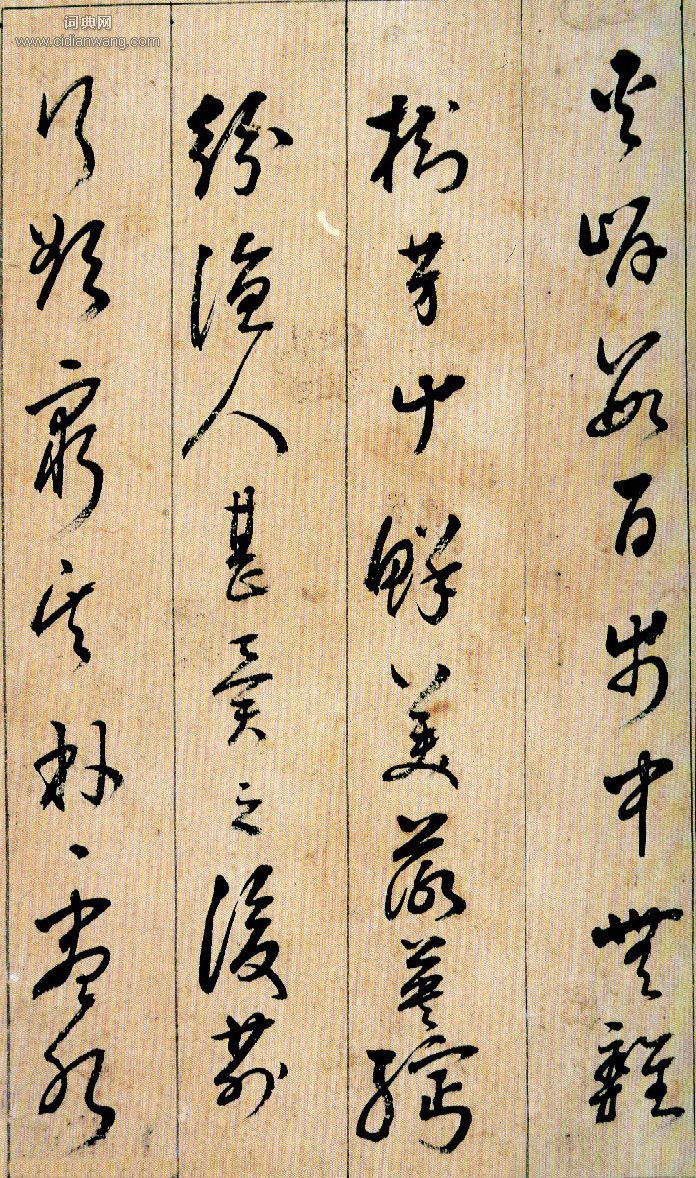 词典网
www.cidianwang.com
夾岸數百步中無雜
樹芳草鮮美落英繽
紛漁人甚異之復前
行欲窮其林〻盡水